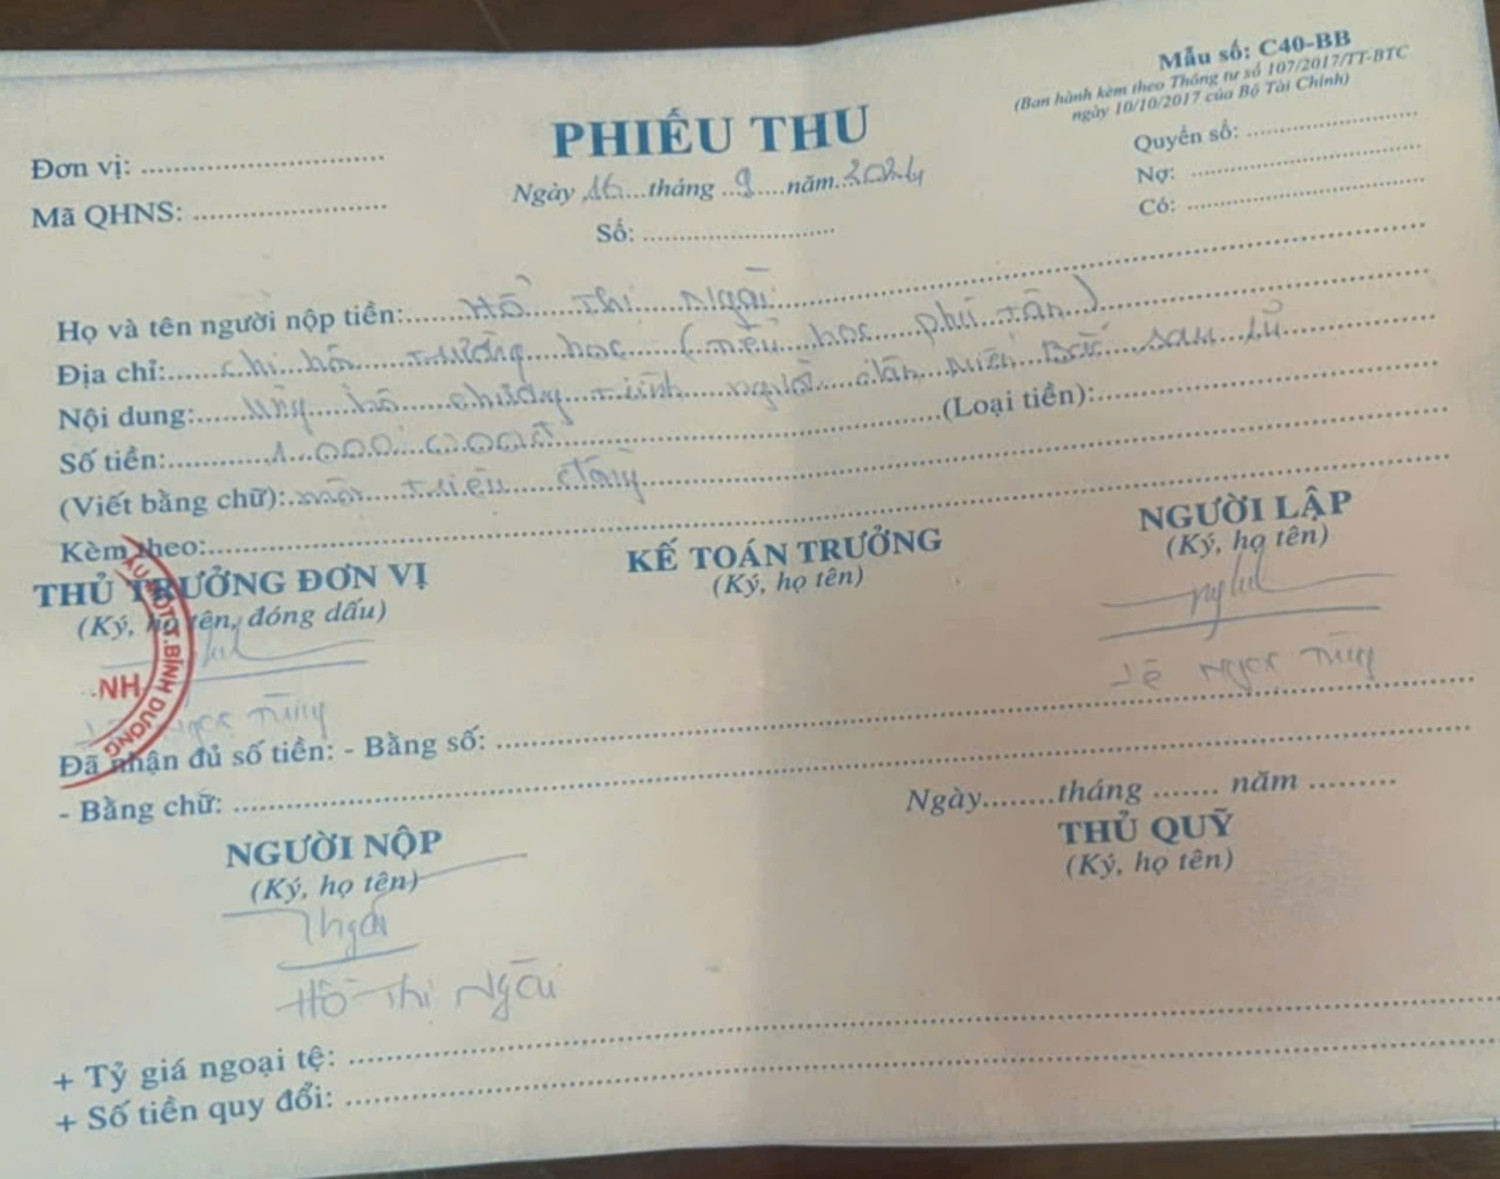 Mẫu số: C40-BB
(Ban hành kèm theo Thông tư số 107/2017/TT-BTC
ngày 10/10/2017 của Bộ Tài Chính)
PHIẾU THU
Đơn vị:
Mã QHNS:
Ngày 16 tháng 9 năm 2024
Số:
Quyển số:
Nợ:
Có:
Họ và tên người nộp tiền: Hồ Thị Ngãi
Địa chỉ: chi hội trường học (Tiểu học phú tân)
Nội dung: ủng hộ chương trình người dân miền Bắc sau lũ
Số tiền: 1.000.000đ (Loại tiền):
(Viết bằng chữ): một triệu đồng
Kèm theo:
THỦ TRƯỞNG ĐƠN VỊ
(Ký, họ tên, đóng dấu)
KẾ TOÁN TRƯỞNG
(Ký, họ tên)
NGƯỜI LẬP
(Ký, họ tên)
T.BÌNH DƯƠNG
Ngọc Tùng
Lê Ngọc Tùng
Đã nhận đủ số tiền: - Bằng số:
- Bằng chữ:
Ngày tháng năm
NGƯỜI NỘP
(Ký, họ tên)
THỦ QUỸ
(Ký, họ tên)
Hồ Thị Ngãi
+ Tỷ giá ngoại tệ:
+ Số tiền quy đổi: